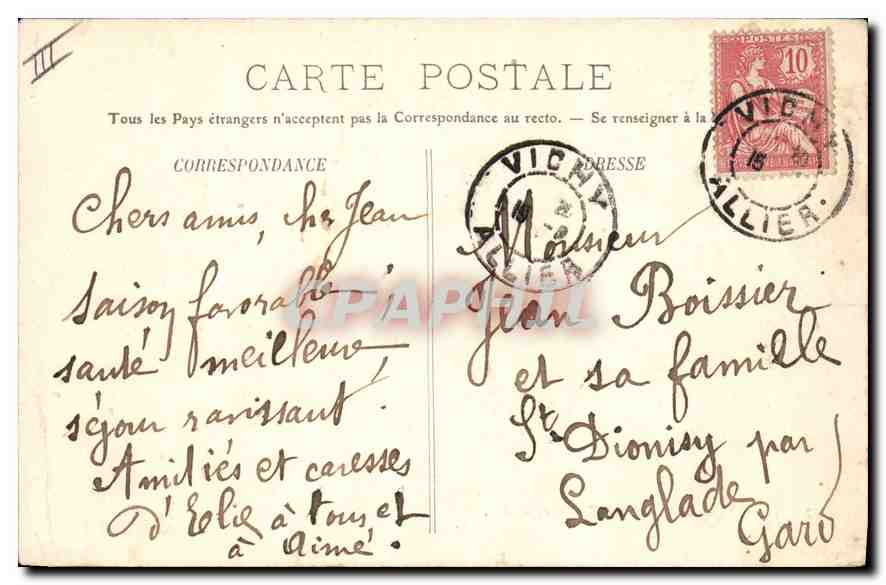 III
CARTE POSTALE
Tous les Pays étrangers n'acceptent pas la Correspondance au recto. — Se renseigner à la
CORRESPONDANCE
Chers amis, cher Jean
saison favorable,
santé meilleure,
séjour ravissant!
Amitiés et caresses
d'Elie à tous et
à Aimé.
ADRESSE
Monsieur
Jean Boissier
et sa famille
St-Dionisy par
Langlade
Gard
POSTES
10
VICHY
ALLIER
VICHY
ALLIER
CPAPHIL